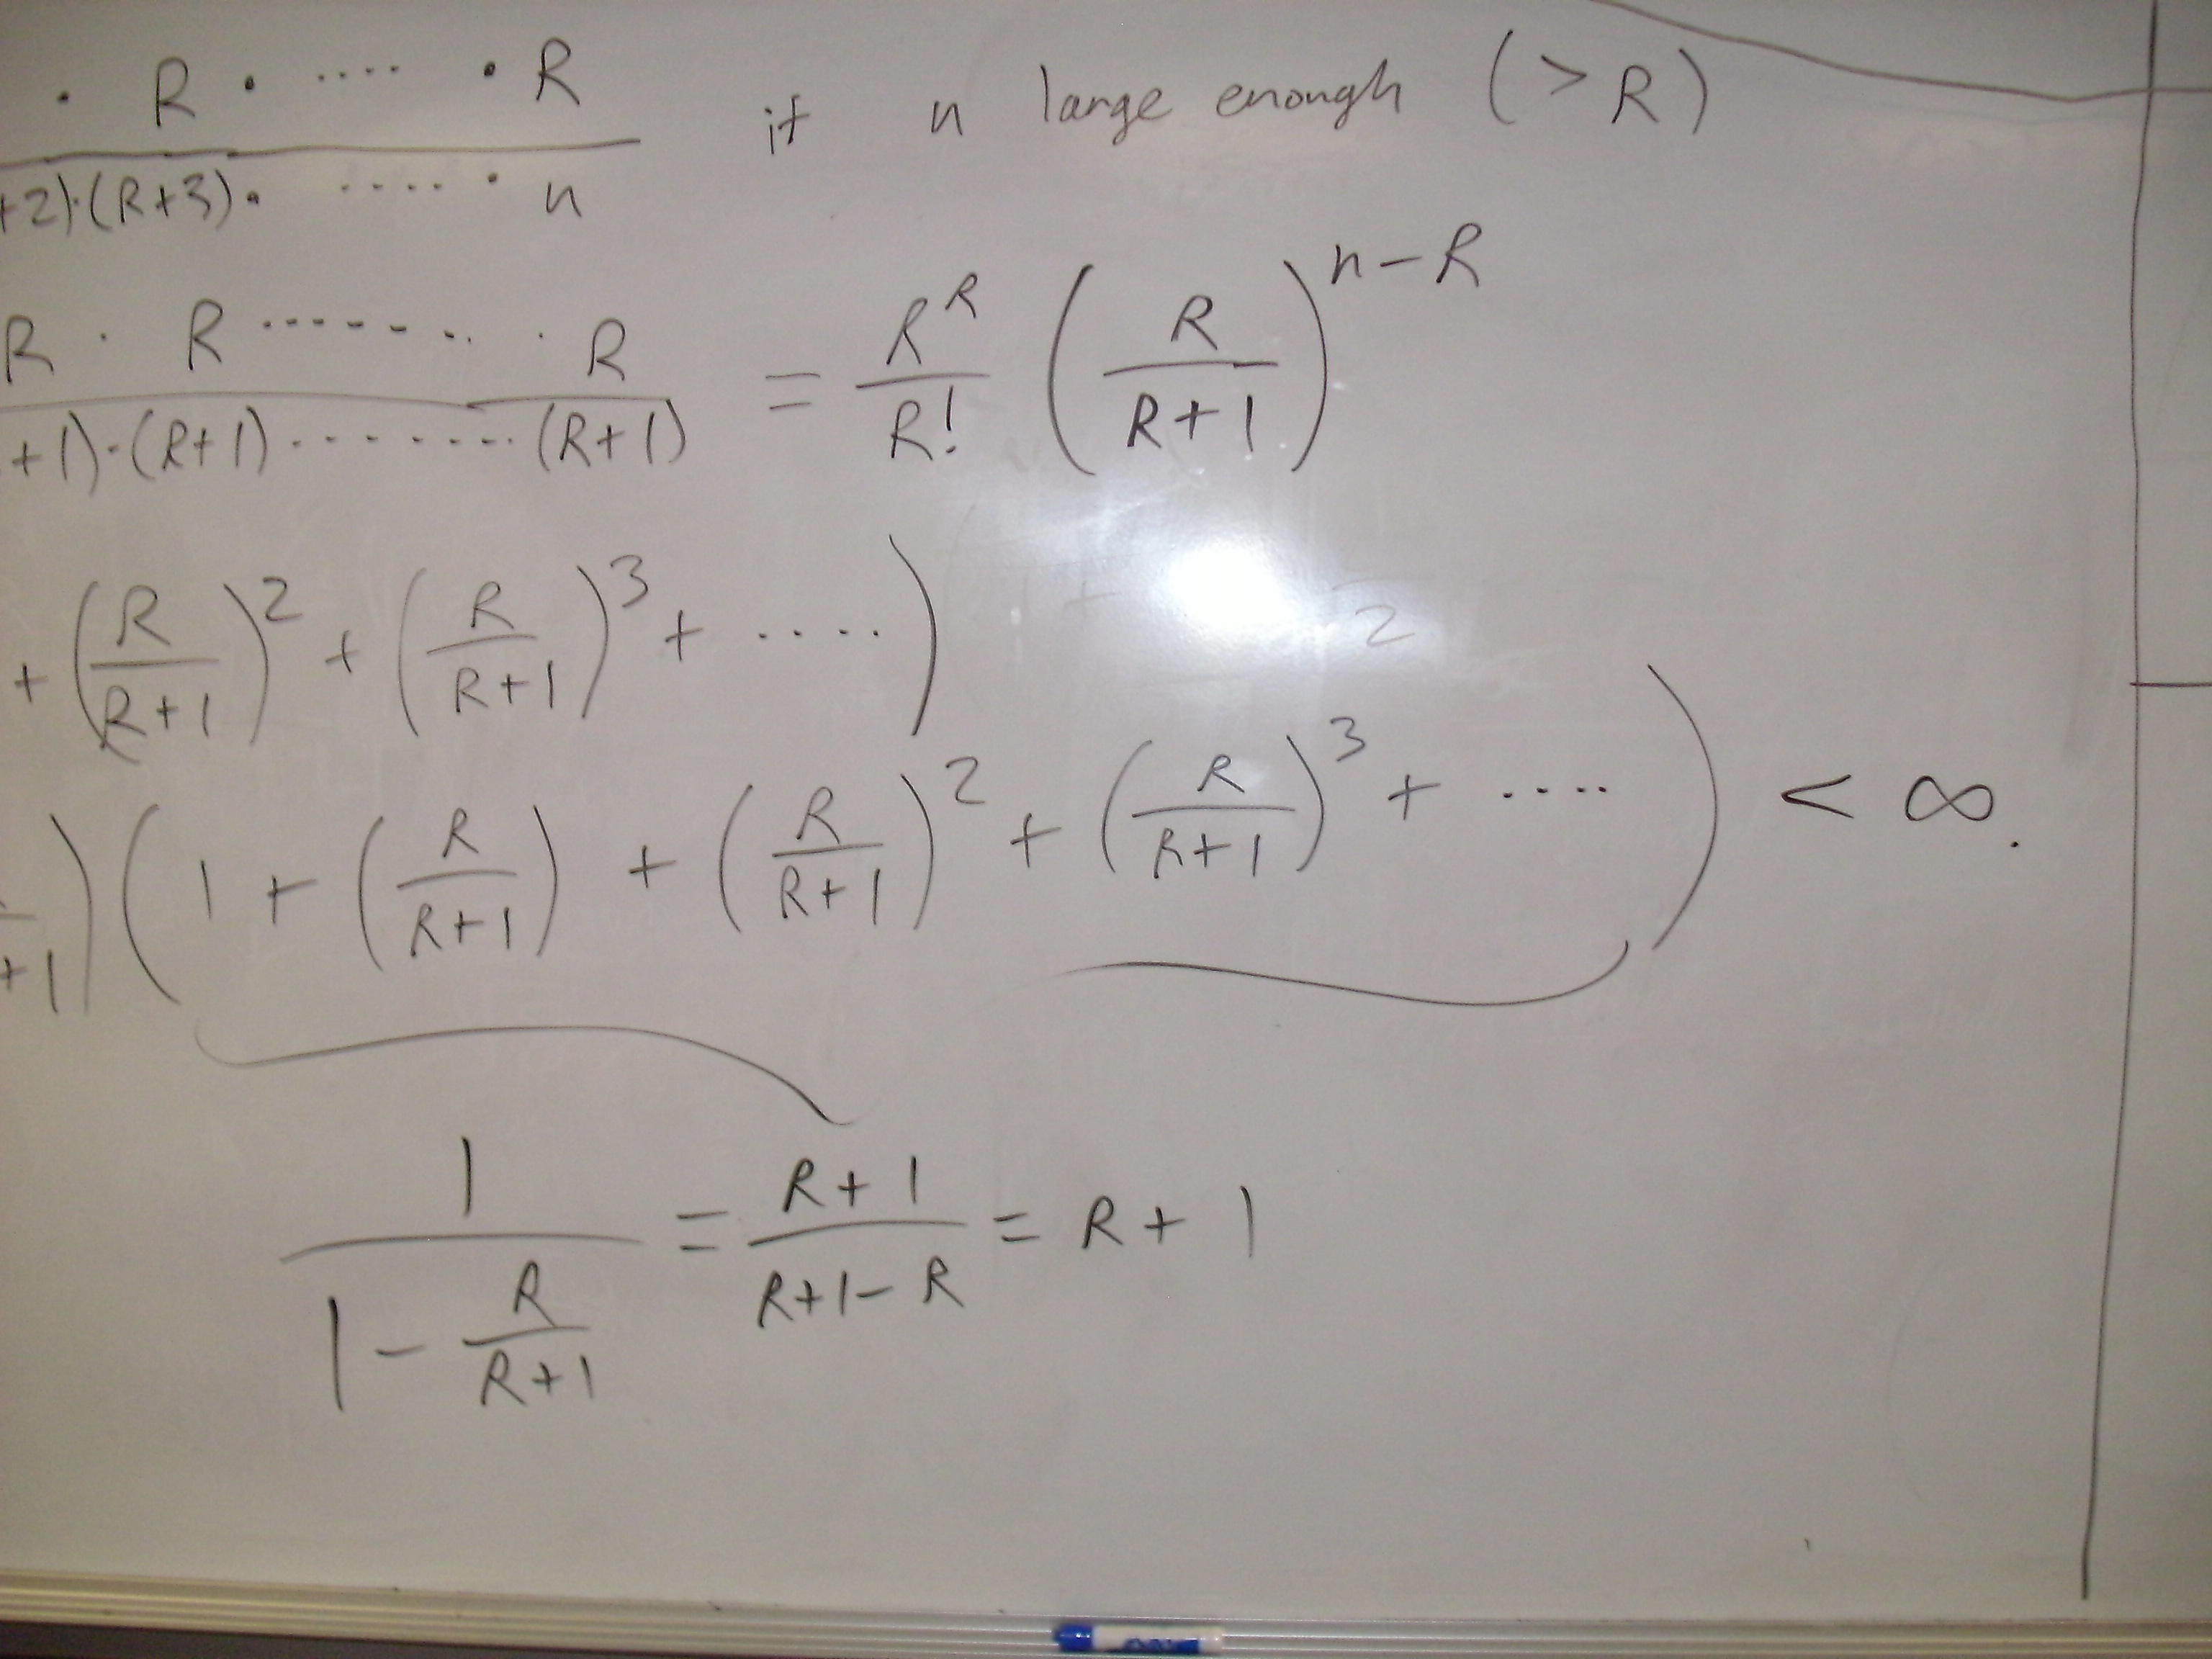 · R · ···· · R if n large enough (> R)
+2)·(R+3)· ···· · n
R · R ········ · R = R^R / R! (R / R+1)^(n-R)
+1)·(R+1) ········ (R+1)
+ (R / R+1)^2 + (R / R+1)^3 + ····)
+1) (1 + (R / R+1) + (R / R+1)^2 + (R / R+1)^3 + ····) < ∞.
1 / (1 - R / R+1) = R+1 / R+1-R = R + 1